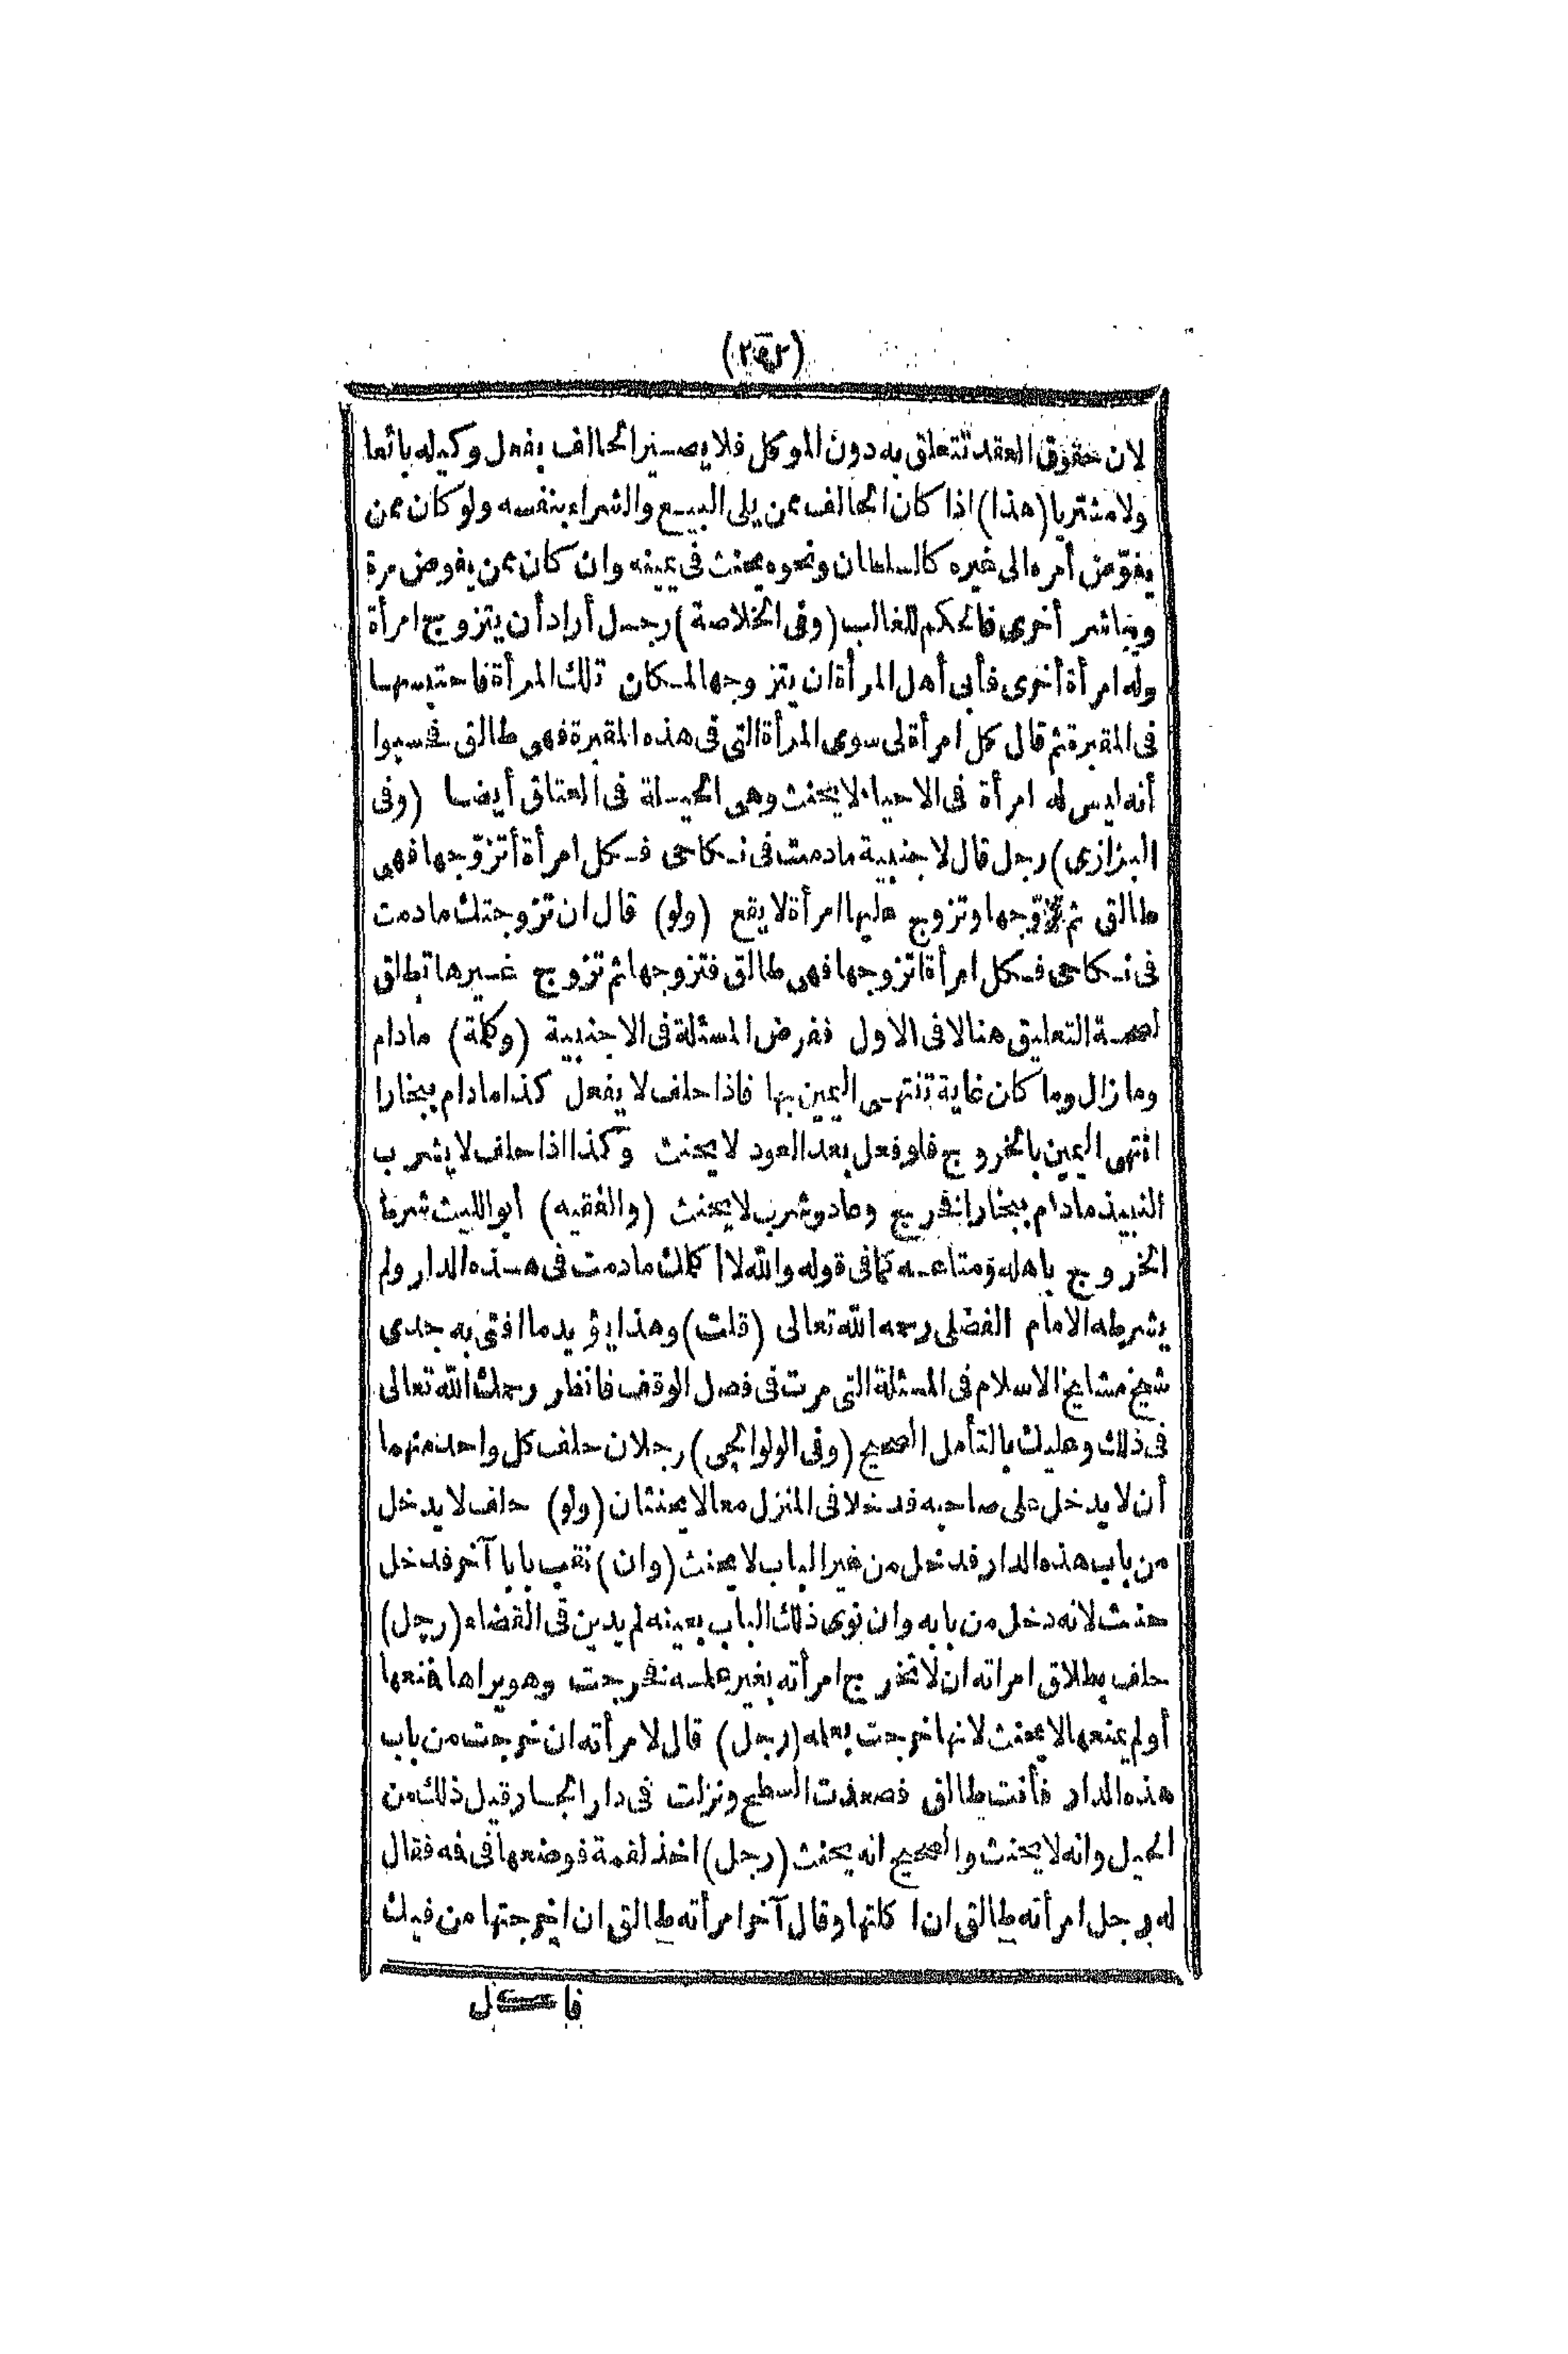 (٢٥٢)
لان حقوق العقد تتعلق به دون الموكل فلا يصير الحالف بفعل وكيله بائعا
ولا مشتريا (هذا) اذا كان الحالف ممن يلى البيع والشراء بنفسه ولو كان ممن
يفوّض أمره الى غيره كالسلطان ونحوه يحنث فى يمينه وان كان ممن يفوض مرة
ويباشر أخرى فالحكم للغالب (وفى الخلاصة) رجل أراد أن يتزوج امرأة
وله امرأة أخرى فأبى أهل المرأة ان يتزوجها لمكان تلك المرأة فاحتبسها
فى المقبرة ثم قال كل امرأة لى سوى المرأة التى فى هذه المقبرة فهى طالق فحسبوا
أنه ليس له امرأة فى الاحياء لا يحنث وهى الحيلة فى العتاق أيضا (وفى
البزازى) رجل قال لاجنبية مادمت فى نكاحى فكل امرأة أتزوّجها فهى
طالق ثم تزوّجها وتزوج عليها امرأة لا يقع (ولو) قال ان تزوجتك مادمت
فى نكاحى فكل امرأة اتزوجها فهى طالق فتزوجها ثم تزوج غيرها تطلق
لصحة التعليق هنا لا فى الاول ففرض المسئلة فى الاجنبية (وكلمة) مادام
وما زال وما كان غاية تنتهى اليمين بها فاذا حلف لا يفعل كذا مادام ببخارا
انتهى اليمين بالخروج فلو فعل بعد العود لا يحنث وكذا اذا حلف لا يشرب
النبيذ مادام ببخارا فخرج وعاد وشرب لا يحنث (والفقيه) أبو الليث شرط
الخروج باهله ومتاعه كما فى قوله والله لا اكلمك مادمت فى هذه الدار ولم
يشرطه الامام الفضلى رحمه الله تعالى (قلت) وهذا يؤيد ما افتى به جدى
شيخ مشايخ الاسلام فى المسئلة التى مرت فى فصل الوقف فانظر رحمك الله تعالى
فى ذلك وعليك بالتأمل الصحيح (وفى الولوالجى) رجلان حلف كل واحد منهما
أن لا يدخل على صاحبه فدخلا فى المنزل معا لا يحنثان (ولو) حلف لا يدخل
من باب هذه الدار فدخل من غير الباب لا يحنث (وان) نقب بابا آخر فدخل
حنث لانه دخل من بابه وان نوى ذلك الباب بعينه لم يدين فى القضاء (رجل)
حلف بطلاق امراته ان لا تخرج امرأته بغير علمه فخرجت وهو يراها فمنعها
أو لم يمنعها لا يحنث لانها خرجت بعلمه (رجل) قال لامرأته ان خرجت من باب
هذه الدار فأنت طالق فصعدت السطح ونزلت فى دار الجار قيل ذلك من
الحيل وانه لا يحنث والصحيح انه يحنث (رجل) اخذ لقمة فوضعها فى فه فقال
له رجل امرأته طالق ان اكلتها وقال آخر امرأته طالق ان اخرجتها من فيك
فاكل